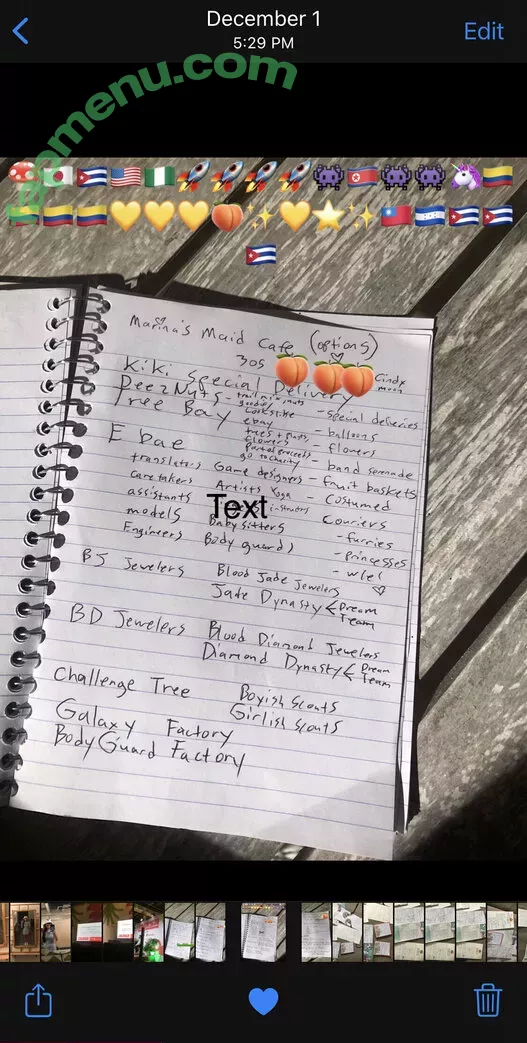 December 1
5:29 PM
Edit
menu.com
Marina's Maid Cafe (options)
30s
Kiki Special Delivery
Cindy
moon
DeezNuts - trail mix nuts
- special deliveries
Tree Bay
ebay
- balloons
trees + nuts
flowers
- flowers
E bae
go to charity
- band serenade
translators
Game designers
- fruit baskets
caretakers
Artists
Yoga
- Costumed
assistants
Text
instructors
Couriers
models
Baby sitters
- furries
Engineers
Body guards
- princesses
BJ Jewelers
Blood Jade Jewelers
Jade Dynasty
Dream
Team
BD Jewelers
Blood Diamond Jewelers
Diamond Dynasty
Dream
Team
Challenge Tree
Boyish Scouts
Girlish Scouts
Galaxy Factory
BodyGuard Factory